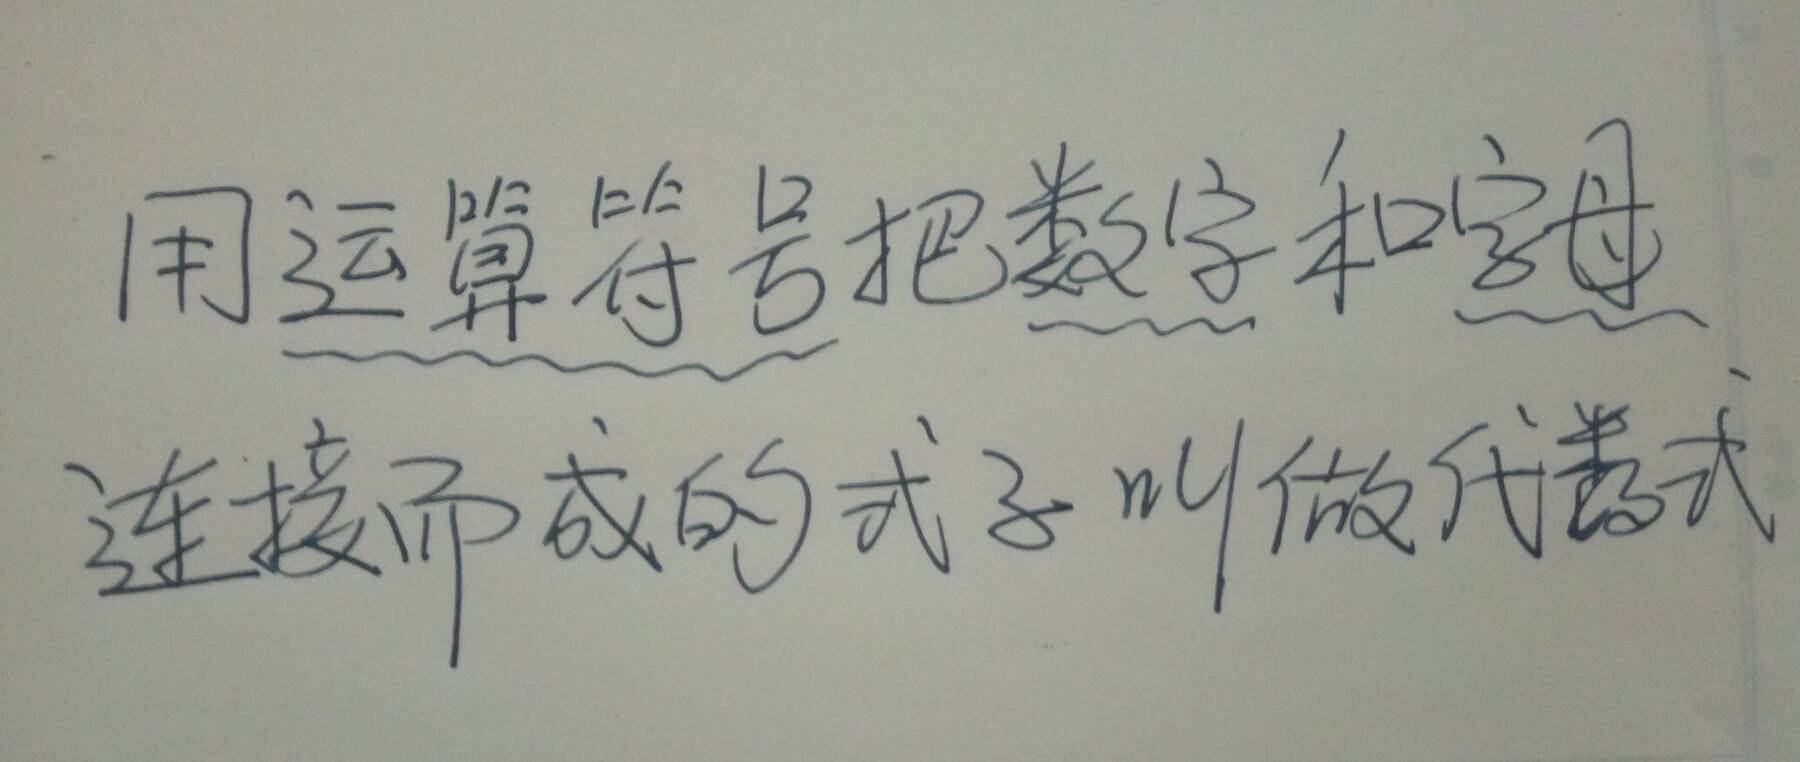 用运算符号把数字和字母
连接而成的式子叫做代数式